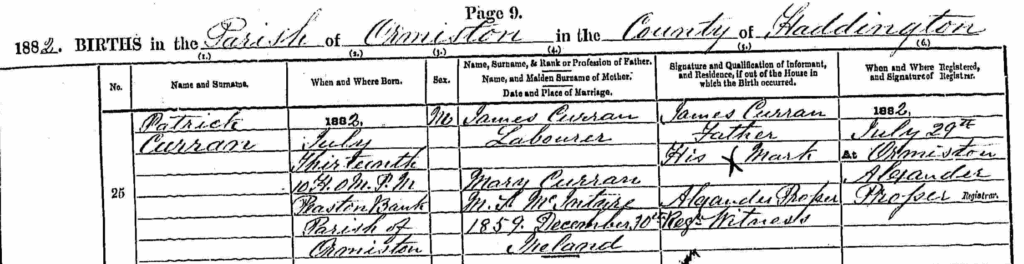 Page 9.
1882. BIRTHS in the Parish of Ormiston in the County of Haddington
(1.) (2.) (3.) (4.) (5.) (6.)
No.
Name and Surname.
When and Where Born.
Sex.
Name, Surname, & Rank or Profession of Father.
Name, and Maiden Surname of Mother.
Date and Place of Marriage.
Signature and Qualification of Informant,
and Residence, if out of the House in
which the Birth occurred.
When and Where Registered,
and Signature of Registrar.
25
Patrick
Curran
1882,
July
Thirteenth
10 H. 0 M. P.M
Peaston Bank
Parish of
Ormiston
M
James Curran
Labourer
Mary Curran
M.S. McIntyre
1859. December, 30th
Ireland
James Curran
Father
His X Mark
Regr Witness
1882
July 29th
At Ormiston
Registrar.